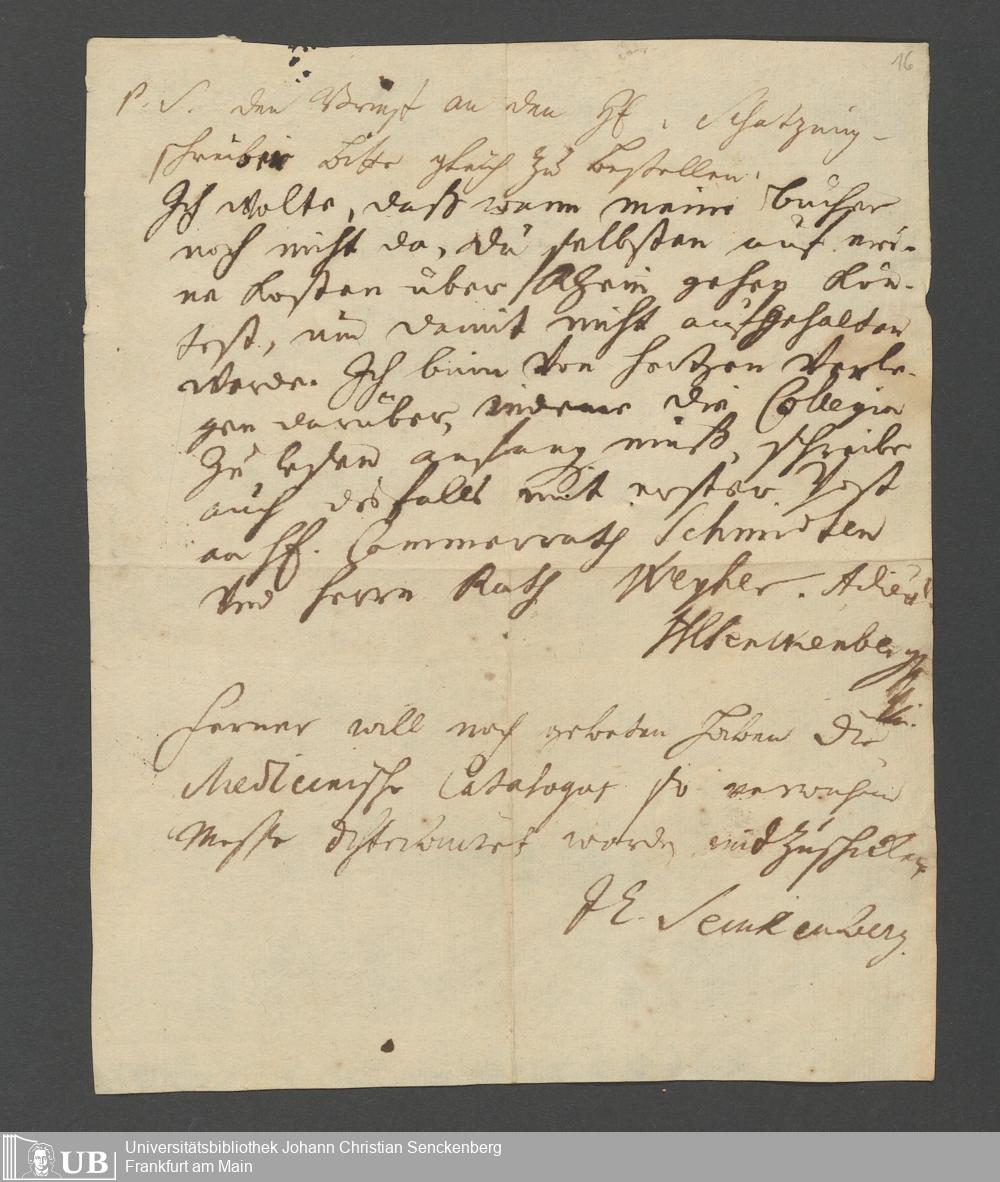 16
P. S. den Brief an den Hf. Schatzung-
schreiber bitte gleich zu bestellen.
Ich wolte, daß wann meine bücher
noch nicht da, du selbsten auf mei-
ne Kosten über Rhein gehen kön-
test, um damit nicht aufgehalten
werde. Ich binn von hertzen verle-
gen darüber, indeme die Collegia
zu lesen anfang muß, schreibe
auch desfalls mit erster Post
an Hf. Cammerrath Schmidten
und Herrn Rath Weyher. Adieu.
HCSenckenberg
ferner will noch gebetten haben die
Medicinische Catalogos so
Messe distribuiret worden mit zuschicken
JE. Senckenberg.
UB
Universitätsbibliothek Johann Christian Senckenberg
Frankfurt am Main